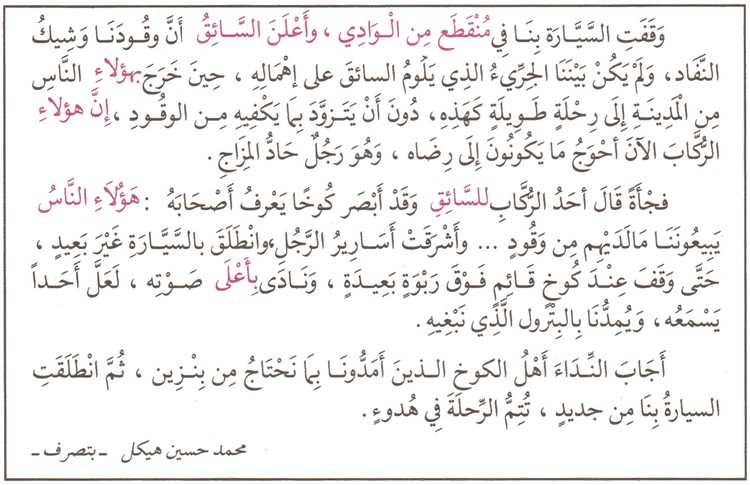 وَقَفَتِ السَّيَّارَة بِنَا فِي مُنْقَطَعٍ مِن الْوَادِي ، وأَعْلَنَ السَّائِقُ أَنَّ وقُودَنَا وَشِيكُ
النَّفَاد، وَلَمْ يَكُنْ بَيْنَنَا الجَرِيءُ الذِي يَلُومُ السائقَ على إهْمَالِهِ ، حِينَ خَرَجَ بِهؤلاءِ النَّاسِ
مِن الْمَدِينَةِ إِلَى رِحْلَةٍ طَوِيلَةٍ كَهَذِهِ، دُونَ أَنْ يَتَزَوَّدَ بِمَا يَكْفِيهِ مِن الوقُودِ ، إِنَّ هؤلاءِ
الرُّكَّابَ الآنَ أحْوَجُ مَا يَكُونُونَ إِلَى رِضَاه ، وَهُوَ رَجُلٌ حَادُّ المِزَاجِ .
فجْأَةً قَالَ أحَدُ الرُّكَّابِ للسَّائِقِ وَقَدْ أبْصَر كُوخًا يَعْرِفُ أَصْحَابَهُ : هَؤُلَاءِ النَّاسُ
يَبِيعُونَنَا مَالَدَيْهِم مِن وَقُودٍ ... وأَشْرَقَتْ أَسَارِيرُ الرَّجُلِ،وانْطَلَقَ بالسَّيَّارَةِ غَيْرَ بَعِيدٍ ،
حَتَّى وَقَفَ عِنْدَ كُوخٍ قَائِمٍ فَوْقَ رَبْوَةٍ بَعِيدَةٍ ، وَنَادَى بِأَعْلَى صَوْتِه ، لَعَلَّ أَحَداً
يَسْمَعُه، وَيُمِدُّنَا بِالبِتْرُولِ الَّذِي نَبْغِيهِ .
أَجَابَ النِّدَاءَ أَهْلُ الكوخِ الذينَ أَمَدُّونَا بِمَا نَحْتَاجُ مِن بِنْزِين ، ثُمَّ انْطَلَقَتِ
السيارةُ بِنَا مِن جديدٍ ، تُتِمُّ الرِّحلَةَ فِي هُدوءٍ .
محمد حسين هيكل ـ بتصرف ـ